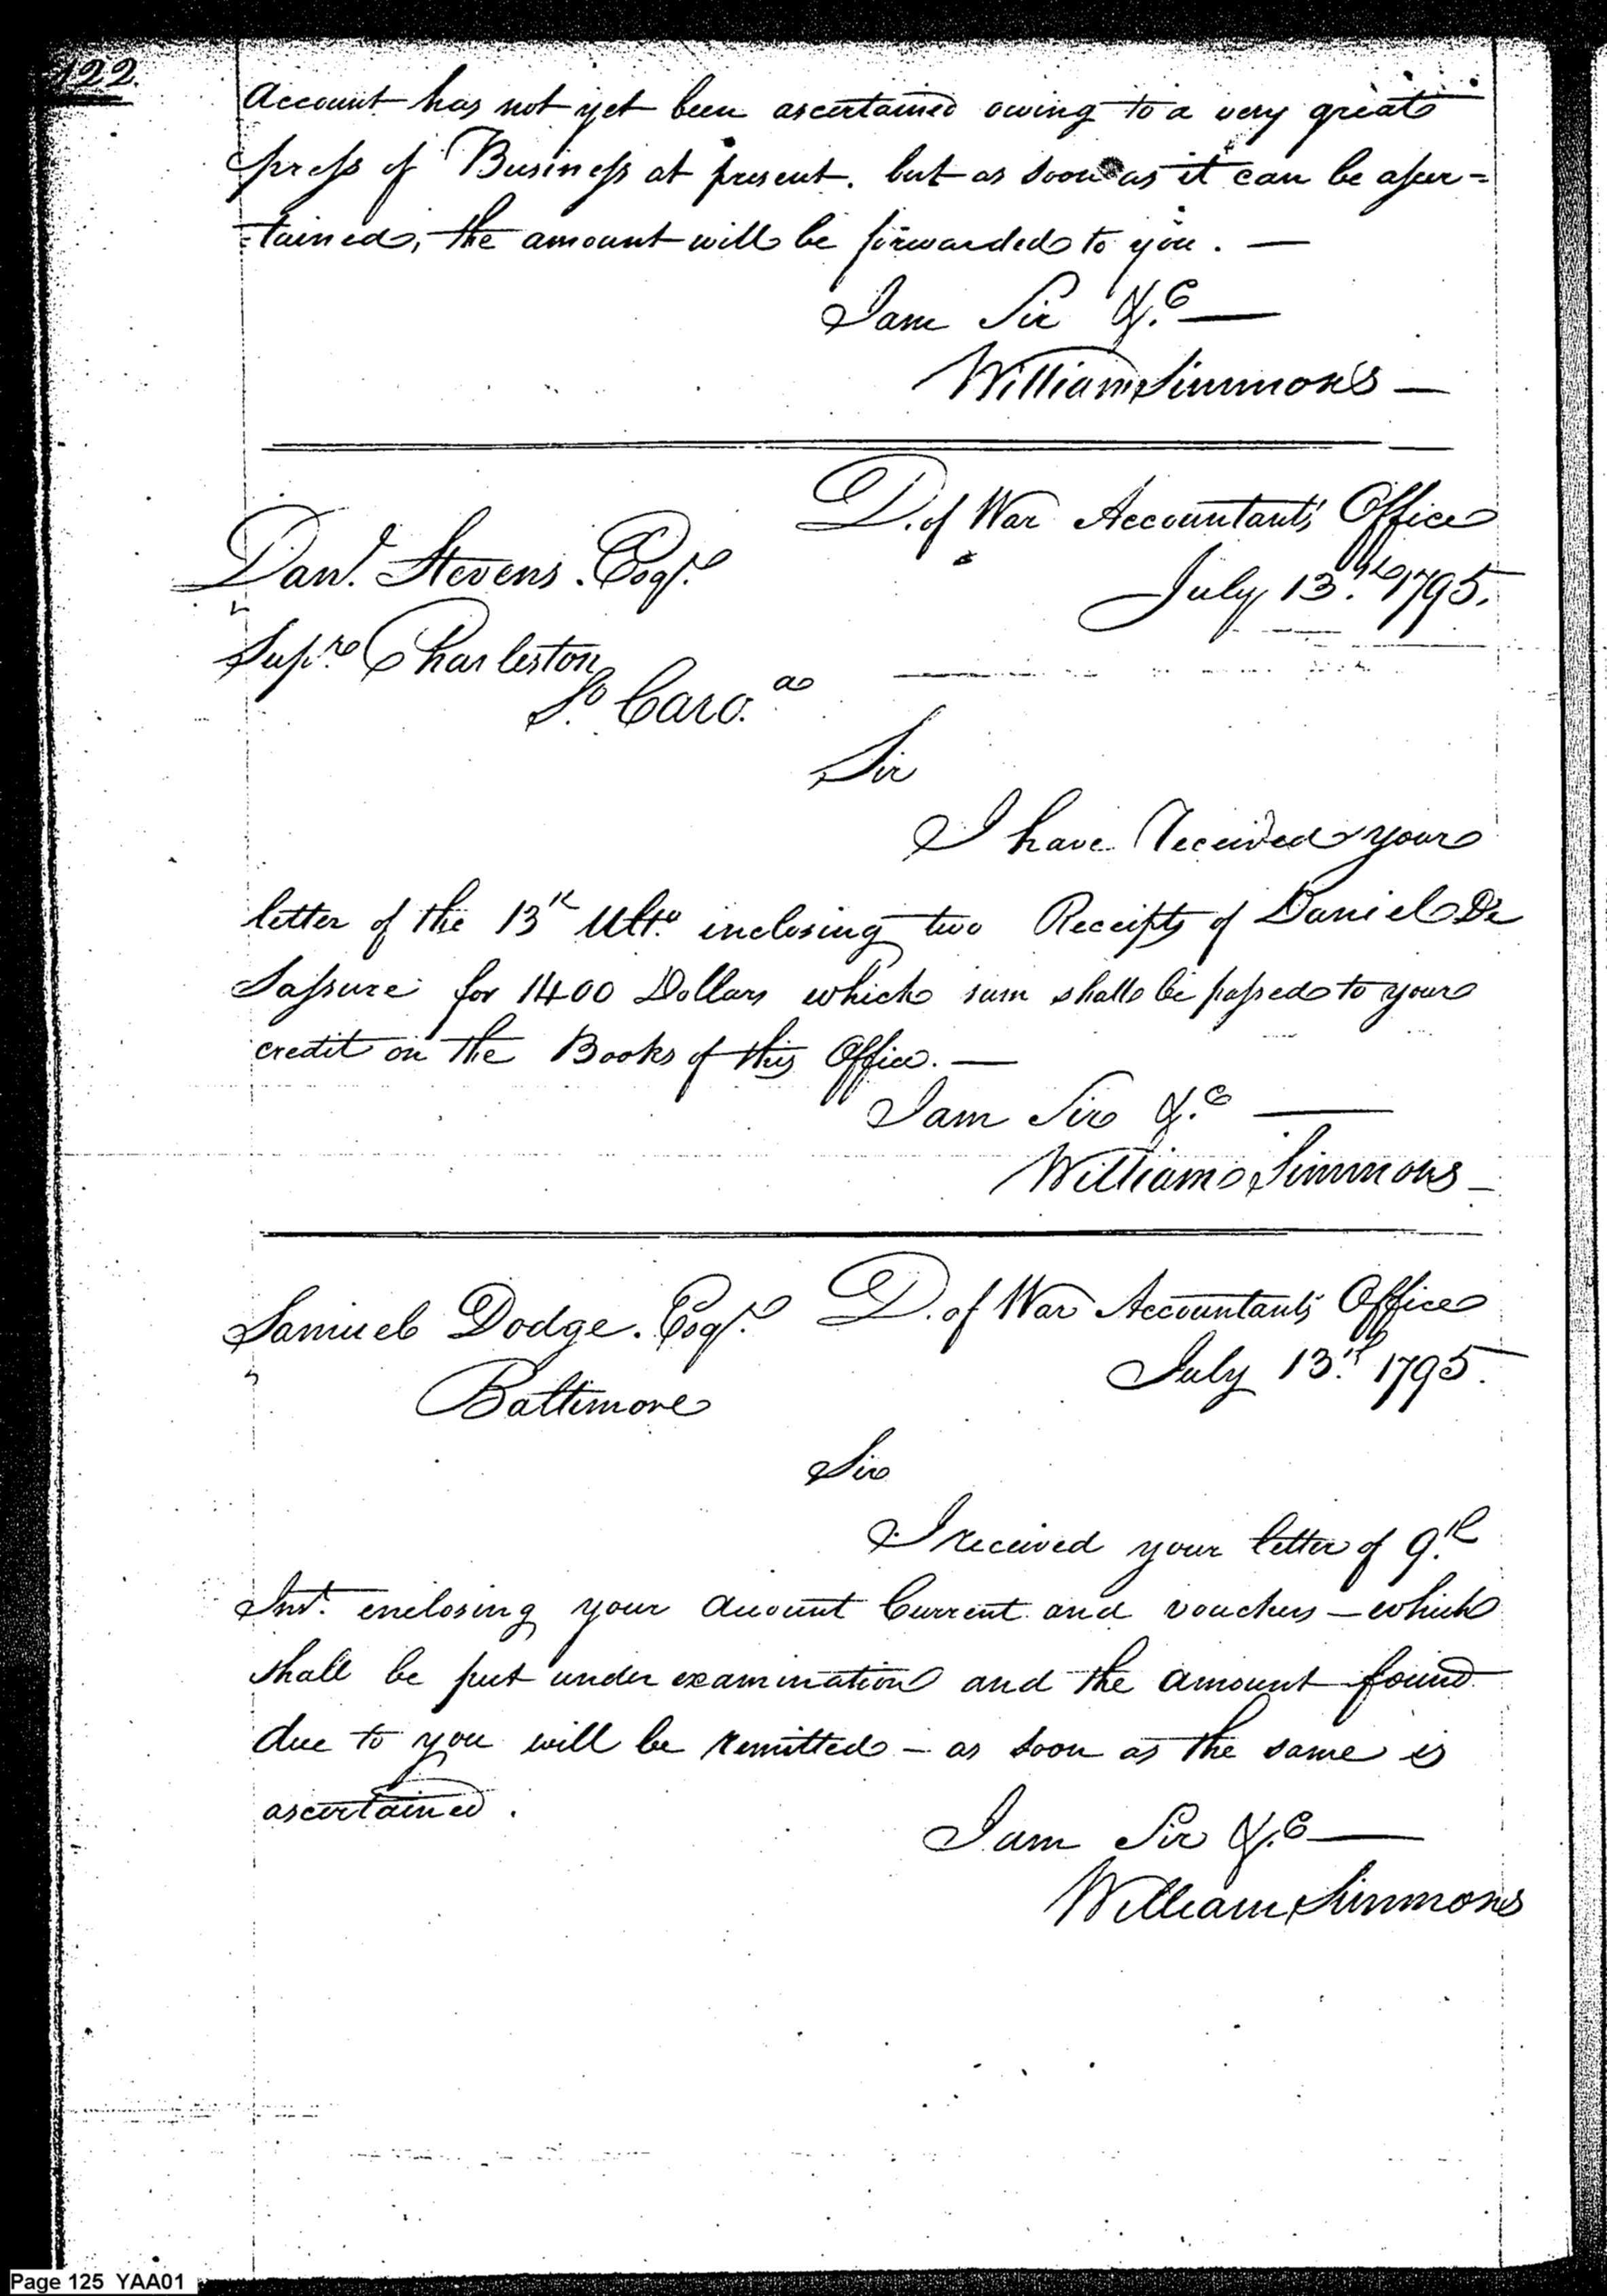 122.
Account has not yet been ascertained owing to a very great
press of Business at present. but as soon as it can be asser=
=tained, the amount will be forwarded to you. —
I am Sir &.c —
William Simmons —
D. of War Accountants Office
July 13.th 1795.
Danl. Stevens. Esqr.
Supre Charleston
So Caro.a
Sir
I have Received your
letter of the 13th Ulto. inclosing two Receipts of Daniel De
Sassure for 1400 Dollars which sum shall be passed to your
credit on the Books of this Office. —
I am Sir &.c —
William Simmons —
Samuel Dodge. Esqr.
Baltimore
D. of War Accountants Office
July 13.th 1795.
Sir
I received your letter of 9.th
Inst. enclosing your account Current and vouchers — which
shall be put under examination and the amount found
due to you will be remitted – as soon as the same is
ascertained.
I am Sir &.c —
William Simmons
Page 125 YAA01